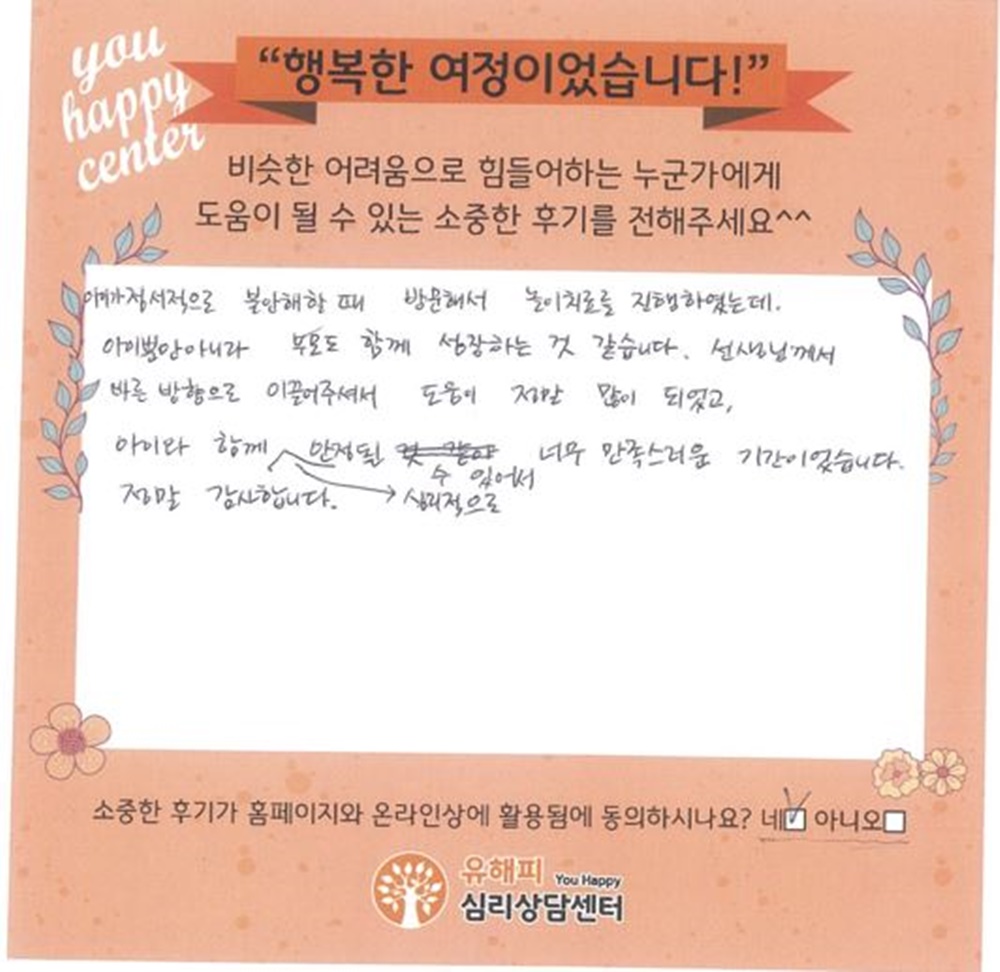 you
happy
center
“행복한 여정이었습니다!”
비슷한 어려움으로 힘들어하는 누군가에게
도움이 될 수 있는 소중한 후기를 전해주세요^^
아이가 정서적으로 불안해할 때 방문해서 놀이치료를 진행하였는데.
아이뿐만아니라 부모도 함께 성장하는 것 같습니다. 선생님께서
바른 방향으로 이끌어주셔서 도움이 정말 많이 되었고,
아이와 함께 안정될 너무 만족스러운 기간이었습니다.
수 있어서
정말 감사합니다. 심리적으로
소중한 후기가 홈페이지와 온라인상에 활용됨에 동의하시나요? 네 아니오
유해피 You Happy
심리상담센터